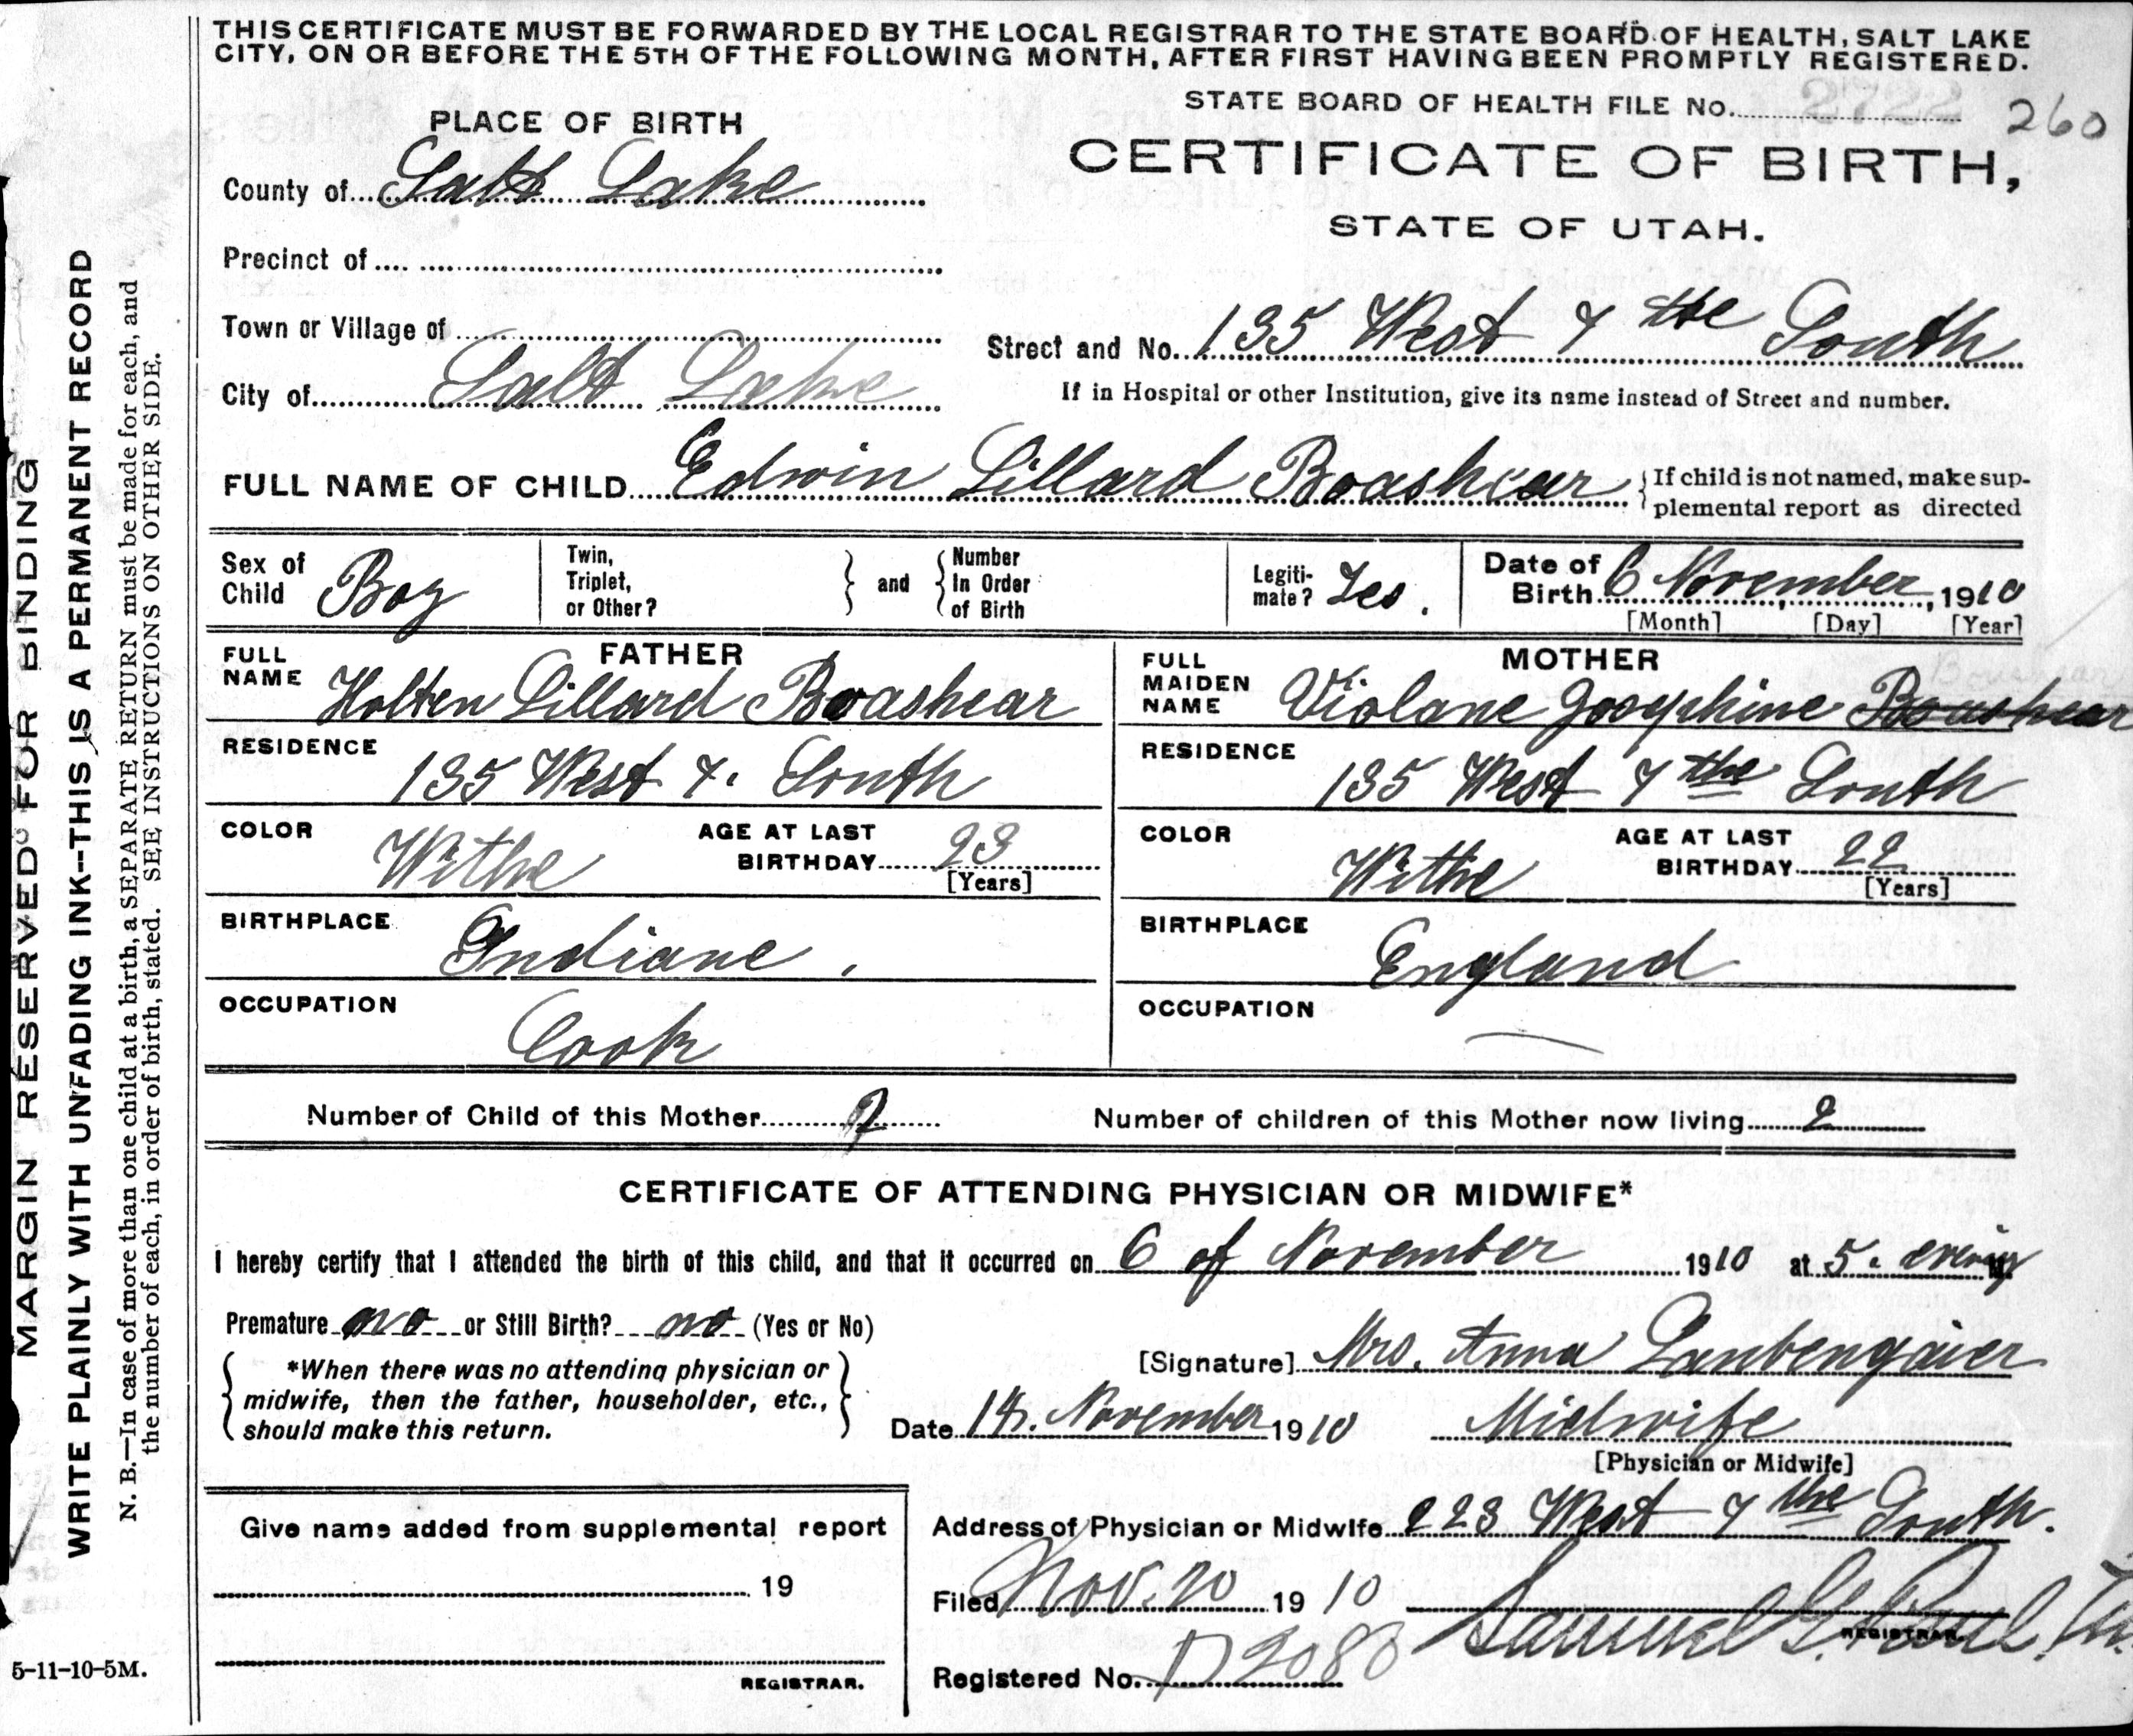 THIS CERTIFICATE MUST BE FORWARDED BY THE LOCAL REGISTRAR TO THE STATE BOARD OF HEALTH, SALT LAKE
CITY, ON OR BEFORE THE 5TH OF THE FOLLOWING MONTH, AFTER FIRST HAVING BEEN PROMPTLY REGISTERED.
STATE BOARD OF HEALTH FILE No. 2722 260
PLACE OF BIRTH
CERTIFICATE OF BIRTH,
STATE OF UTAH.
County of Salt Lake
Precinct of
Town or Village of
Street and No. 135 West 7 the South
City of Salt Lake
If in Hospital or other Institution, give its name instead of Street and number.
FULL NAME OF CHILD Edwin Lillard Boashear
{If child is not named, make sup-
plemental report as directed
Sex of Child Boy
Twin, Triplet, or Other?
} and {
Number In Order of Birth
Legiti-mate? Yes.
Date of Birth 6 November, 1910
[Month] [Day] [Year]
FATHER
FULL NAME Holten Lillard Boashear
MOTHER
FULL MAIDEN NAME Violane Josephine Boashear
RESIDENCE 135 West 7. South
RESIDENCE 135 West 7 the South
COLOR Withe
AGE AT LAST BIRTHDAY 23
[Years]
COLOR Withe
AGE AT LAST BIRTHDAY 22
[Years]
BIRTHPLACE Indiane.
BIRTHPLACE England
OCCUPATION Cook
OCCUPATION —
Number of Child of this Mother 2
Number of children of this Mother now living 2
CERTIFICATE OF ATTENDING PHYSICIAN OR MIDWIFE*
I hereby certify that I attended the birth of this child, and that it occurred on 6 of November 1910 at 5. evening M.
Premature no or Still Birth? no (Yes or No)
{*When there was no attending physician or
midwife, then the father, householder, etc.,
should make this return.}
[Signature] Mrs. Anna Laubengaier
Date 14. November 1910
Midwife
[Physician or Midwife]
Give name added from supplemental report
19
REGISTRAR.
Address of Physician or Midwife 223 West 7 the South.
Filed Nov. 20 1910
Samuel G. Paul
REGISTRAR.
Registered No. D 2080
5-11-10-5M.
MARGIN RESERVED FOR BINDING
WRITE PLAINLY WITH UNFADING INK--THIS IS A PERMANENT RECORD
N. B.—In case of more than one child at a birth, a SEPARATE RETURN must be made for each, and
the number of each, in order of birth, stated. SEE INSTRUCTIONS ON OTHER SIDE.